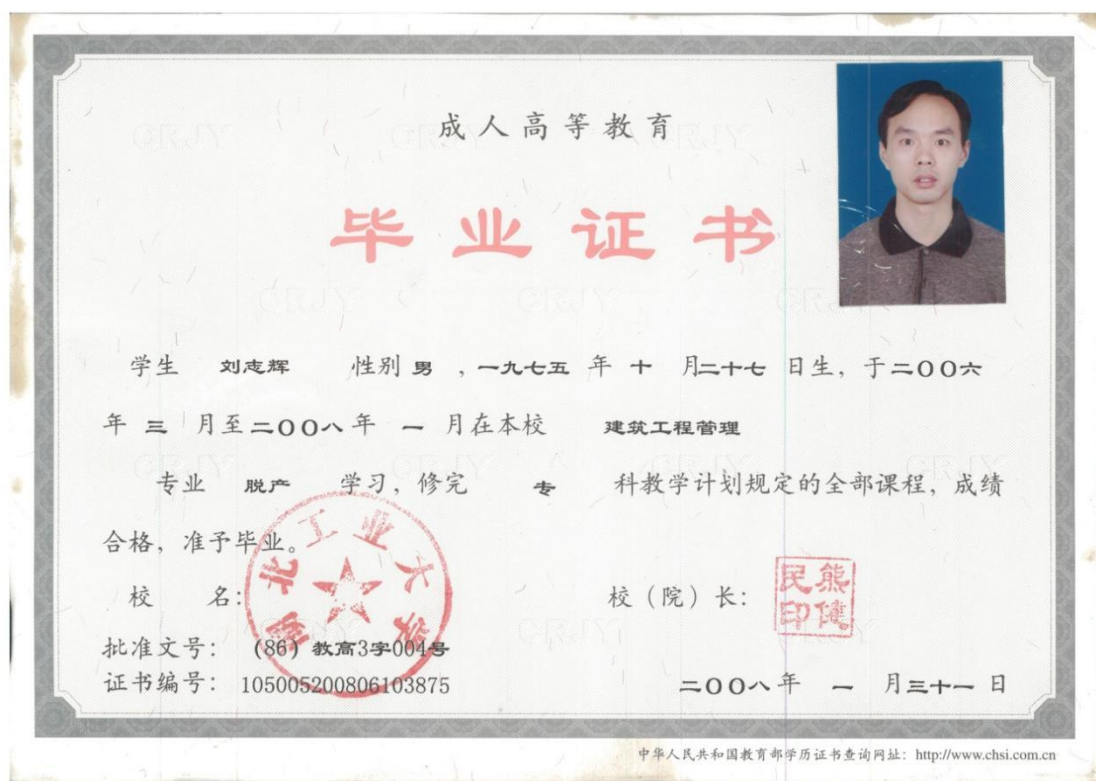 成人高等教育
毕业证书
学生 刘志辉 性别 男 ，一九七五 年 十 月二十七 日生，于二00六
年 三 月至二00八年 一 月在本校 建筑工程管理
专业 脱产 学习，修完 专 科教学计划规定的全部课程，成绩
合格，准予毕业。
湖北工业大学
校 名：
校（院）长：
熊健民印
批准文号： (86) 教高3字004号
证书编号： 105005200806103875
二00八年 一 月三十一 日
中华人民共和国教育部学历证书查询网址：http://www.chsi.com.cn